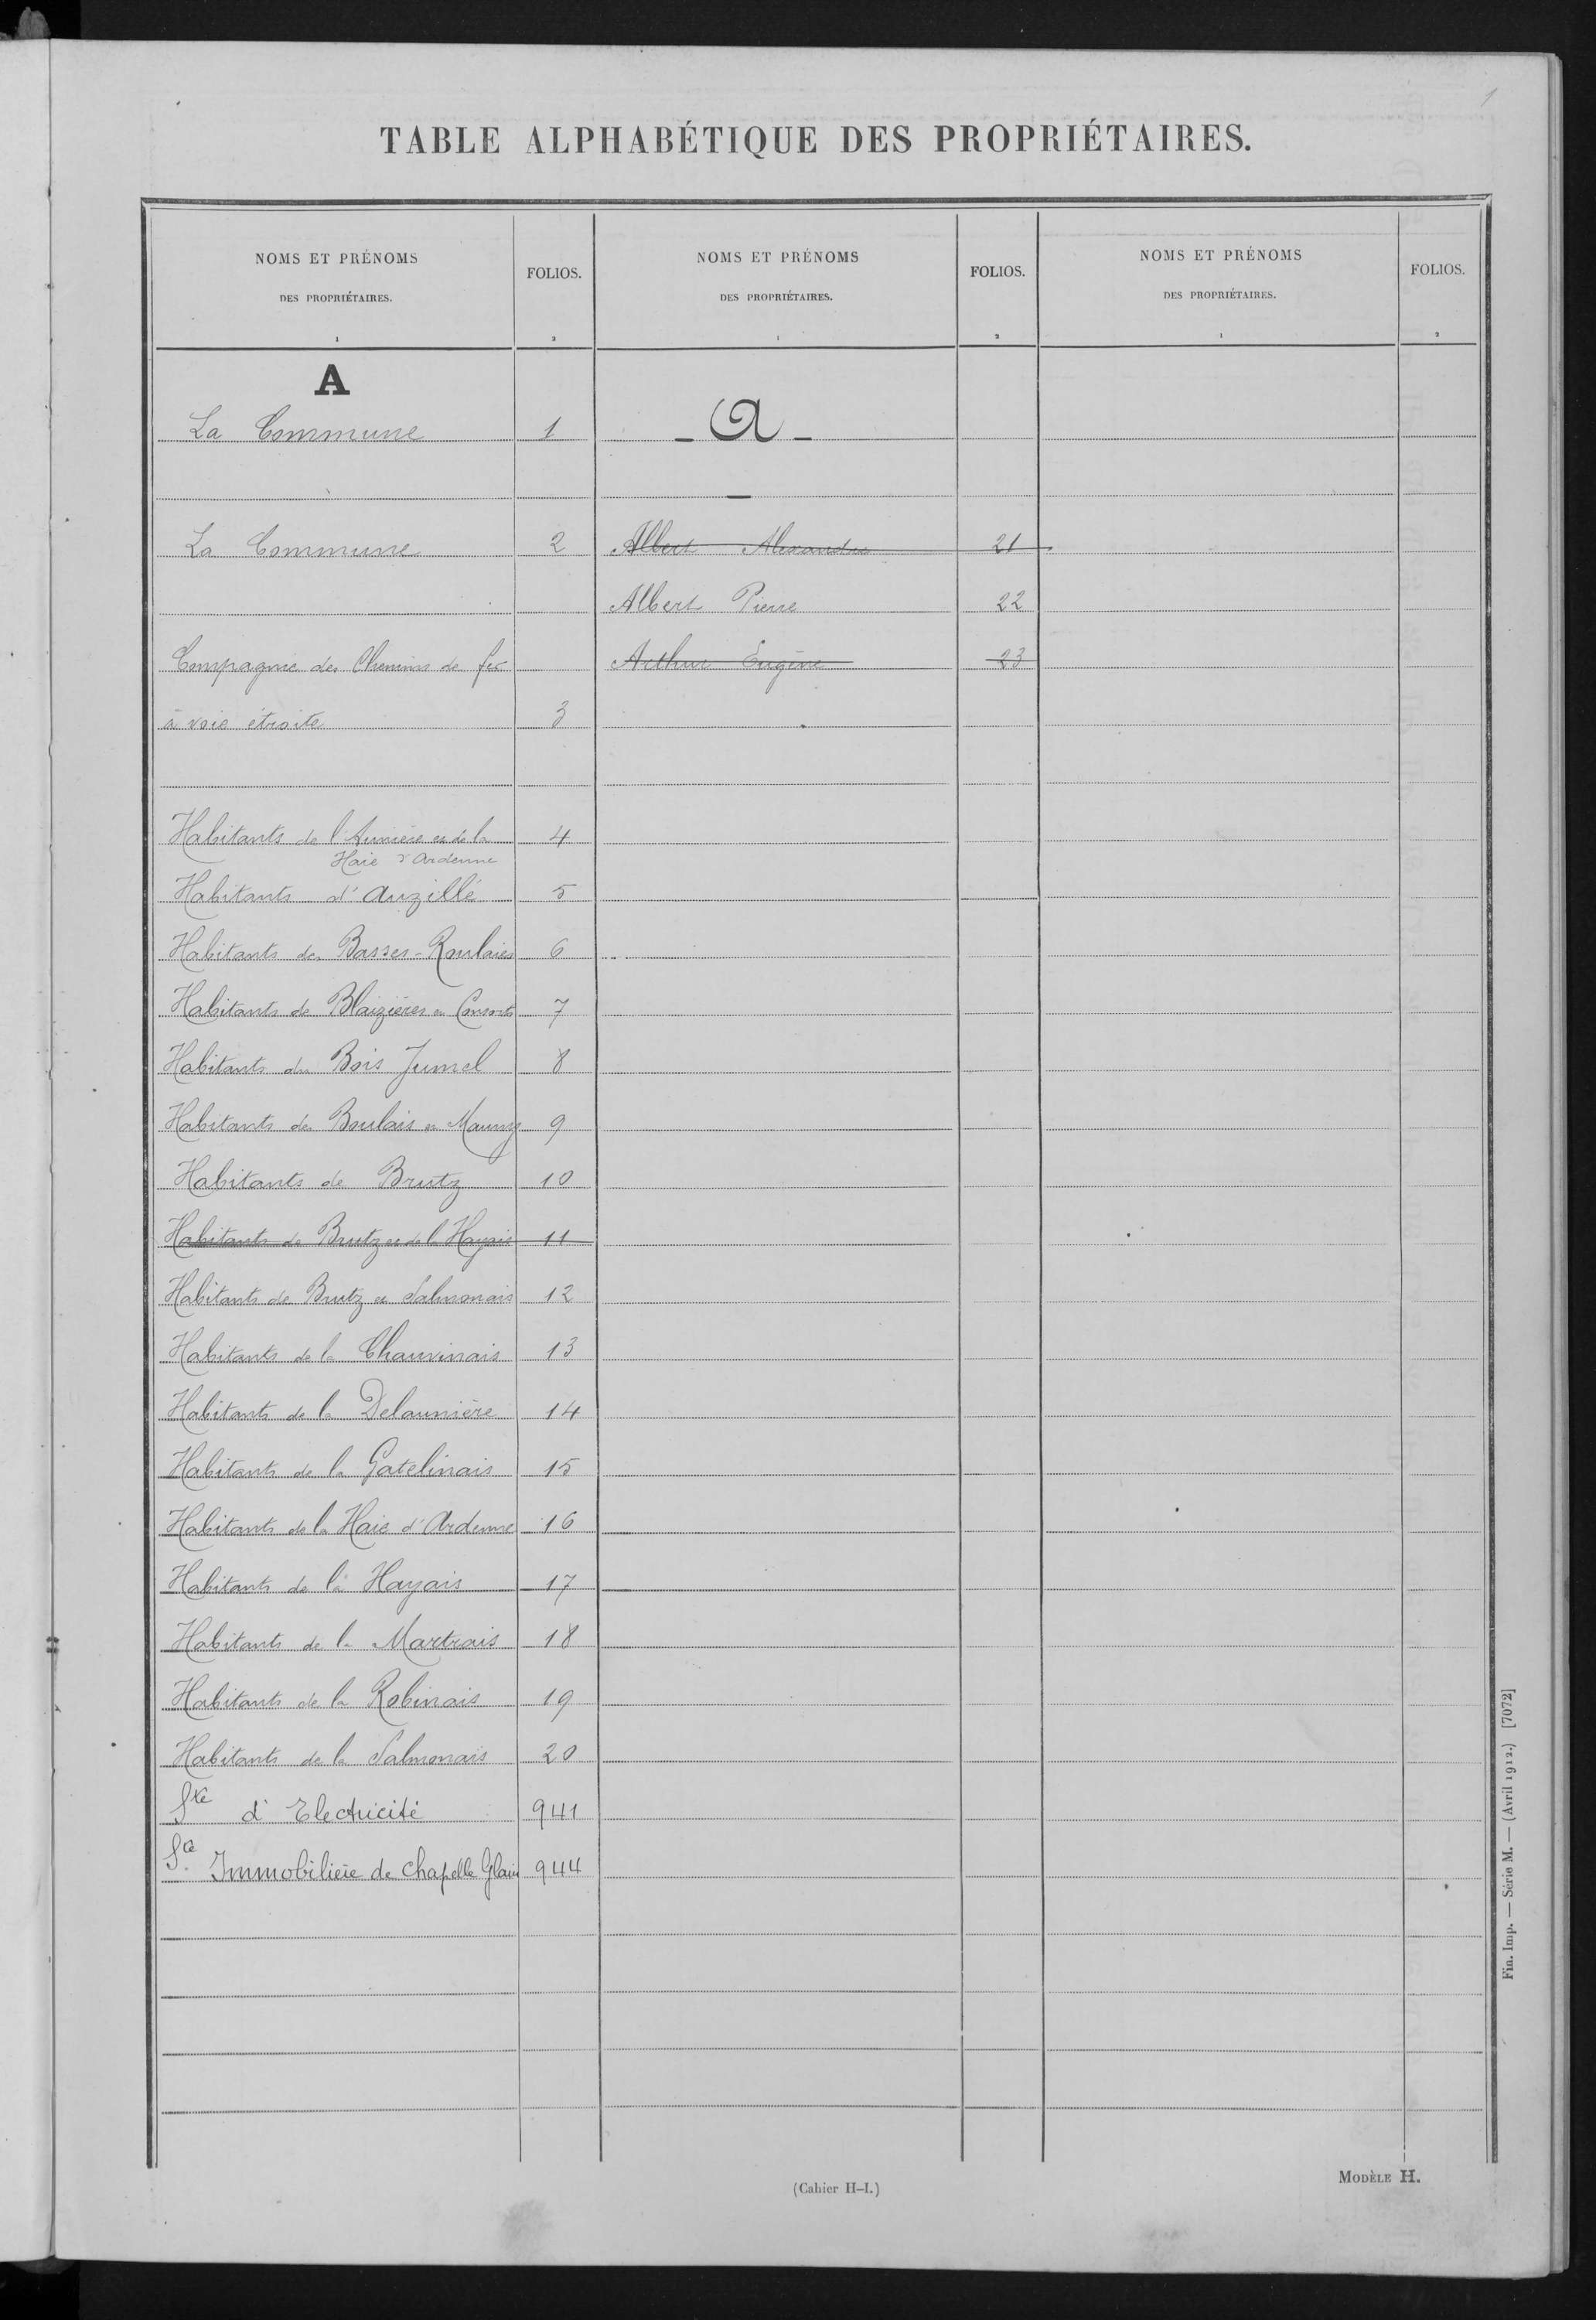 1
TABLE ALPHABÉTIQUE DES PROPRIÉTAIRES.
NOMS ET PRÉNOMS
DES PROPRIÉTAIRES.
1
FOLIOS.
2
NOMS ET PRÉNOMS
DES PROPRIÉTAIRES.
1
FOLIOS.
2
NOMS ET PRÉNOMS
DES PROPRIÉTAIRES.
1
FOLIOS.
2
A
La Commune 1
La Commune 2
Compagnie des Chemins de fer
à voie étroite 3
Habitants de l'Aunière et de la 4
Haie d'Ardenne
Habitants d'Auzillé 5
Habitants des Basses-Roulais 6
Habitants de Blaizières et Consorts 7
Habitants du Bois Jumel 8
Habitants des Boulais et Mauny 9
Habitants de Brutz 10
Habitants de Brutz et de la Hayais 11
Habitants de Brutz et Salmonais 12
Habitants de la Chauvinais 13
Habitants de la Delaunière 14
Habitants de la Gatelinais 15
Habitants de la Haie d'Ardenne 16
Habitants de la Hayais 17
Habitants de la Martrais 18
Habitants de la Robinais 19
Habitants de la Salmonais 20
Sté d'Electricité 941
Sté Immobilière de Chapelle Glain 944
- A -
Albert Alexandre 21
Albert Pierre 22
Arthur Eugène 23
Fin. Imp. — Série M. — (Avril 1912.) [7072]
(Cahier H-I.)
MODÈLE H.